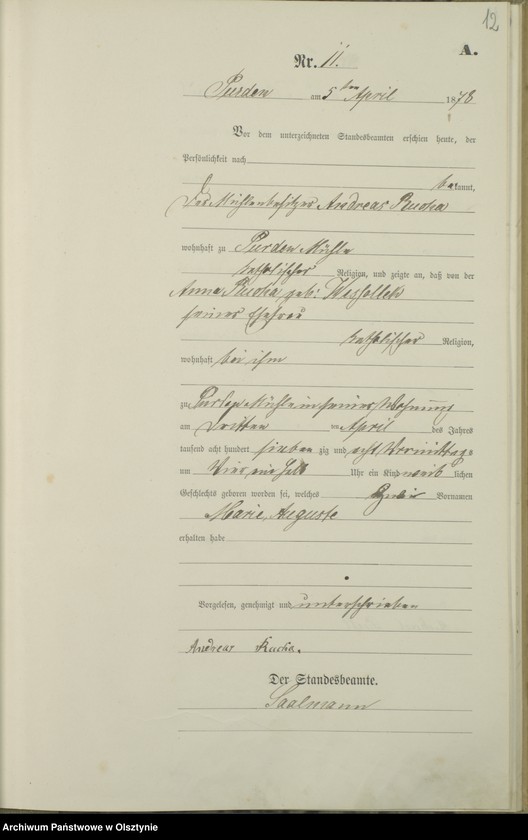 12
A.
Nr. 11.
Purden am 5ten April 1878
Vor dem unterzeichneten Standesbeamten erschien heute, der
Persönlichkeit nach
bekannt,
Der Mühlenbesitzer Andreas Kucha
wohnhaft zu Purden Mühle
katholischer Religion, und zeigte an, daß von der
Anna Kucha geb:
seiner Ehefrau
katholischer Religion,
wohnhaft bei ihm
zu Purden Mühle in seiner Wohnung
am dritten April des Jahres
tausend acht hundert sieben zig und acht Vormittags
um Vier ein halb Uhr ein Kind weib lichen
Geschlechts geboren worden sei, welches Vornamen
Marie, Auguste
erhalten habe
Vorgelesen, genehmigt und unterschrieben
Andreas Kucha.
Der Standesbeamte.
Saalmann
Archiwum Państwowe w Olsztynie